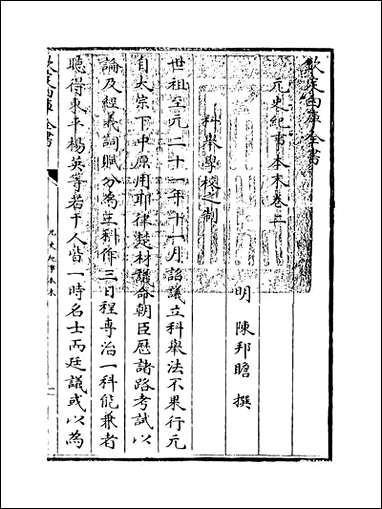 欽定四庫全書
元史紀事本末卷上
明 陳邦瞻 撰
科舉學校之制
世祖至元二十一年十一月詔議立科舉法不果行元
自太宗下中原用耶律楚材議命朝臣歷諸路考試以
論及經義詞賦分為三科作三日程專治一科能兼者
聽得東平楊英等若干人皆一時名士而廷議或以為
欽定四庫全書
元史紀事本末